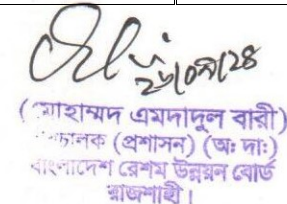 ২৬/০৯/২৪
(মোহাম্মদ এমদাদুল বারী)
(প্রশাসন) (অঃ দাঃ)
বাংলাদেশ রেশম উন্নয়ন বোর্ড
রাজশাহী।